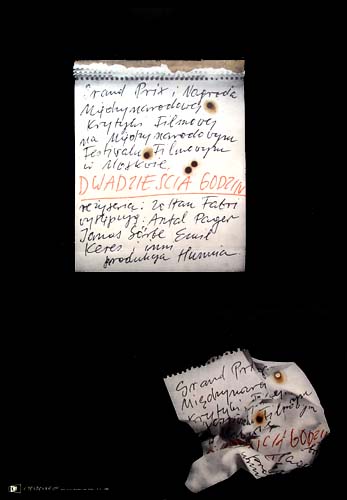 Grand Prix i Nagroda
Międzynarodowej
Krytyki Filmowej
na Międzynarodowym
Festivalu Filmowym
w Moskwie
DWADZIEŚCIA GODZIN
reżyseria: Zoltan Fabri
występują: Antal Pager
Janos Görbe Emil
Keres i inni
produkcja Hunnia
Grand Prix
Międzynaro
Krytyki
CIA GODZI